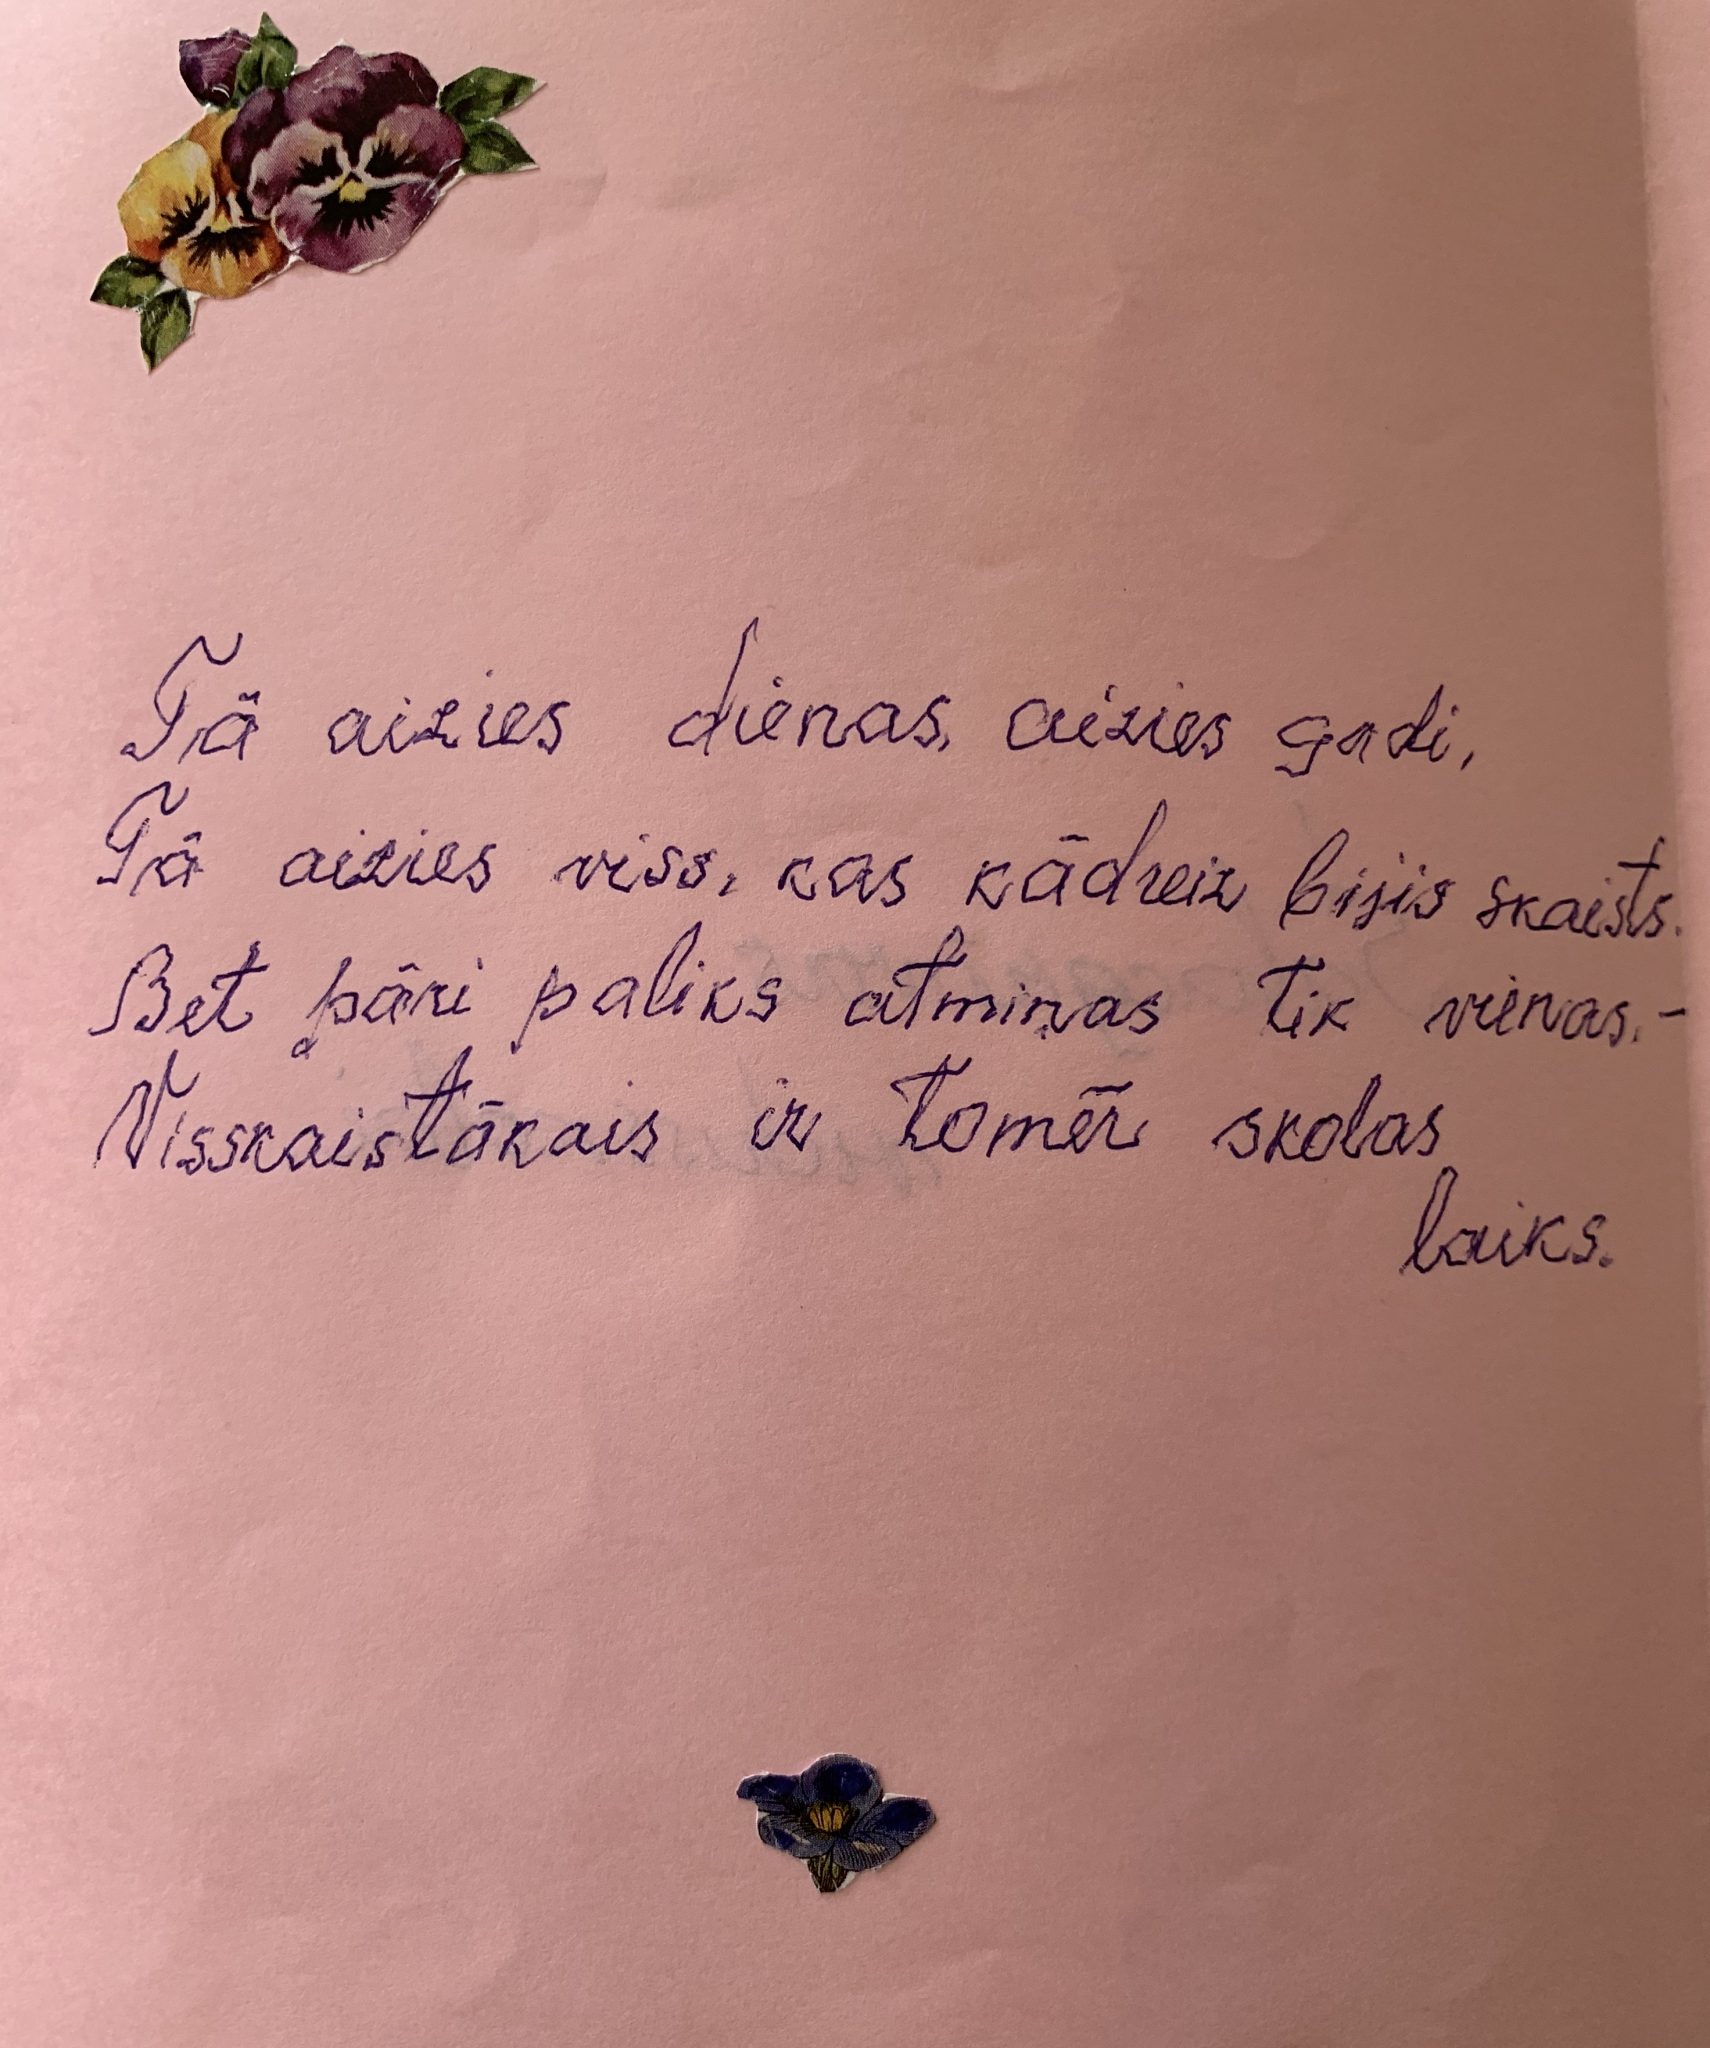 Tā aizies dienas, aizies gadi,
Tā aizies viss, kas kādreiz bijis skaists.
Bet pāri paliks atmiņas tik vienas. –
Visskaistākais ir tomēr skolas
laiks.